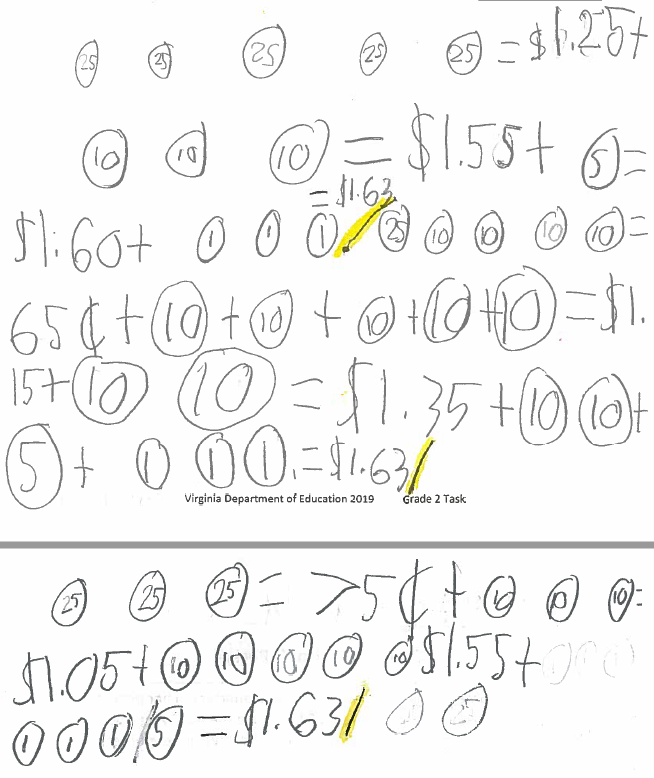 25 25 25 25 25 = $1.25+
10 10 10 = $1.55+ 5 =
= $1.63
$1.60+ 1 1 1 / 25 10 10 10 10 =
65¢+ 10 + 10 + 10 + 10 + 10 = $1.
15+ 10 10 = $1.35+ 10 10 +
5 + 1 1 1 = $1.63/
Virginia Department of Education 2019 Grade 2 Task
25 25 25 = 75¢+ 10 10 10 =
$1.05+ 10 10 10 10 10 $1.55+
1 1 1 5 = $1.63/